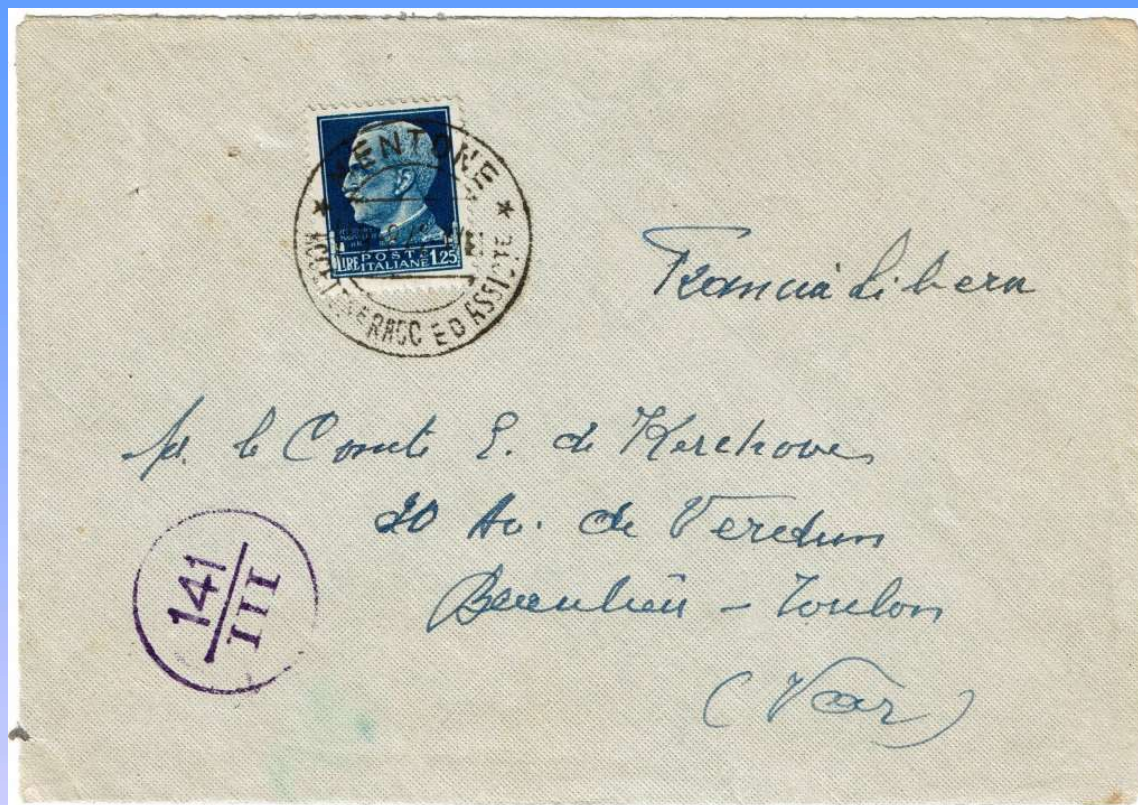 MENTONE
LIRE POSTE ITALIANE 1.25
ED ASSICTE
Francia Libera
le Comte E. de Kerchove
20 Av. de Verdun
Beaulieu - Toulon
(Var)
141
III